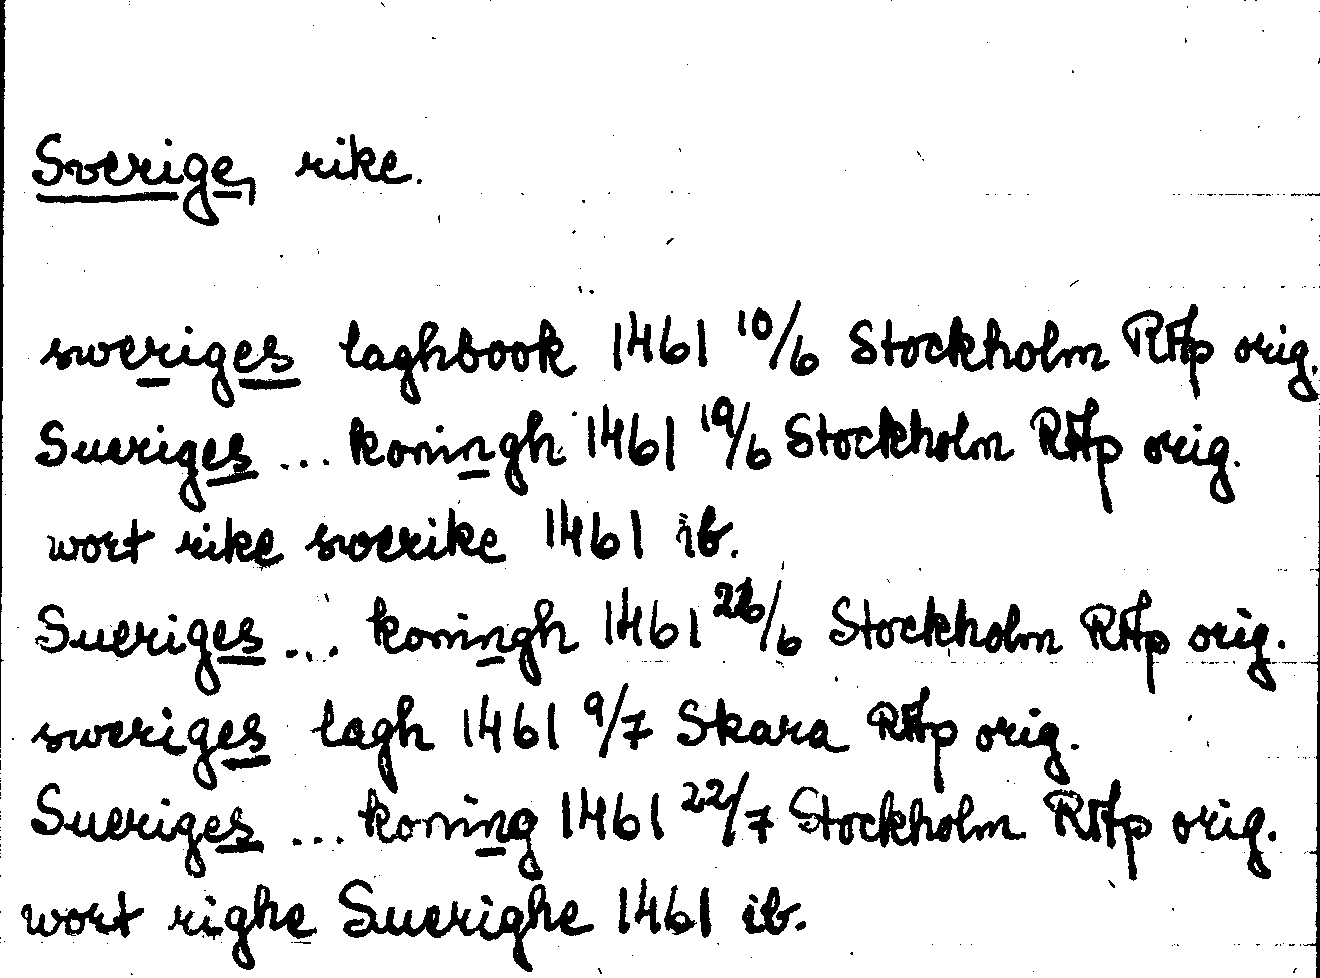 Sverige, rike.
sweriges laghbook 1461 10/6 Stockholm RAp orig.
Sueriges ... koningh 1461 19/6 Stockholm RAp orig.
wort rike swerike 1461 ib.
Sueriges ... koningh 1461 /6 Stockholm RAp orig.
sweriges lagh 1461 9/7 Skara RAp orig.
Sueriges ... koning 1461 22/7 Stockholm RAp orig.
wort righe Suerighe 1461 ib.